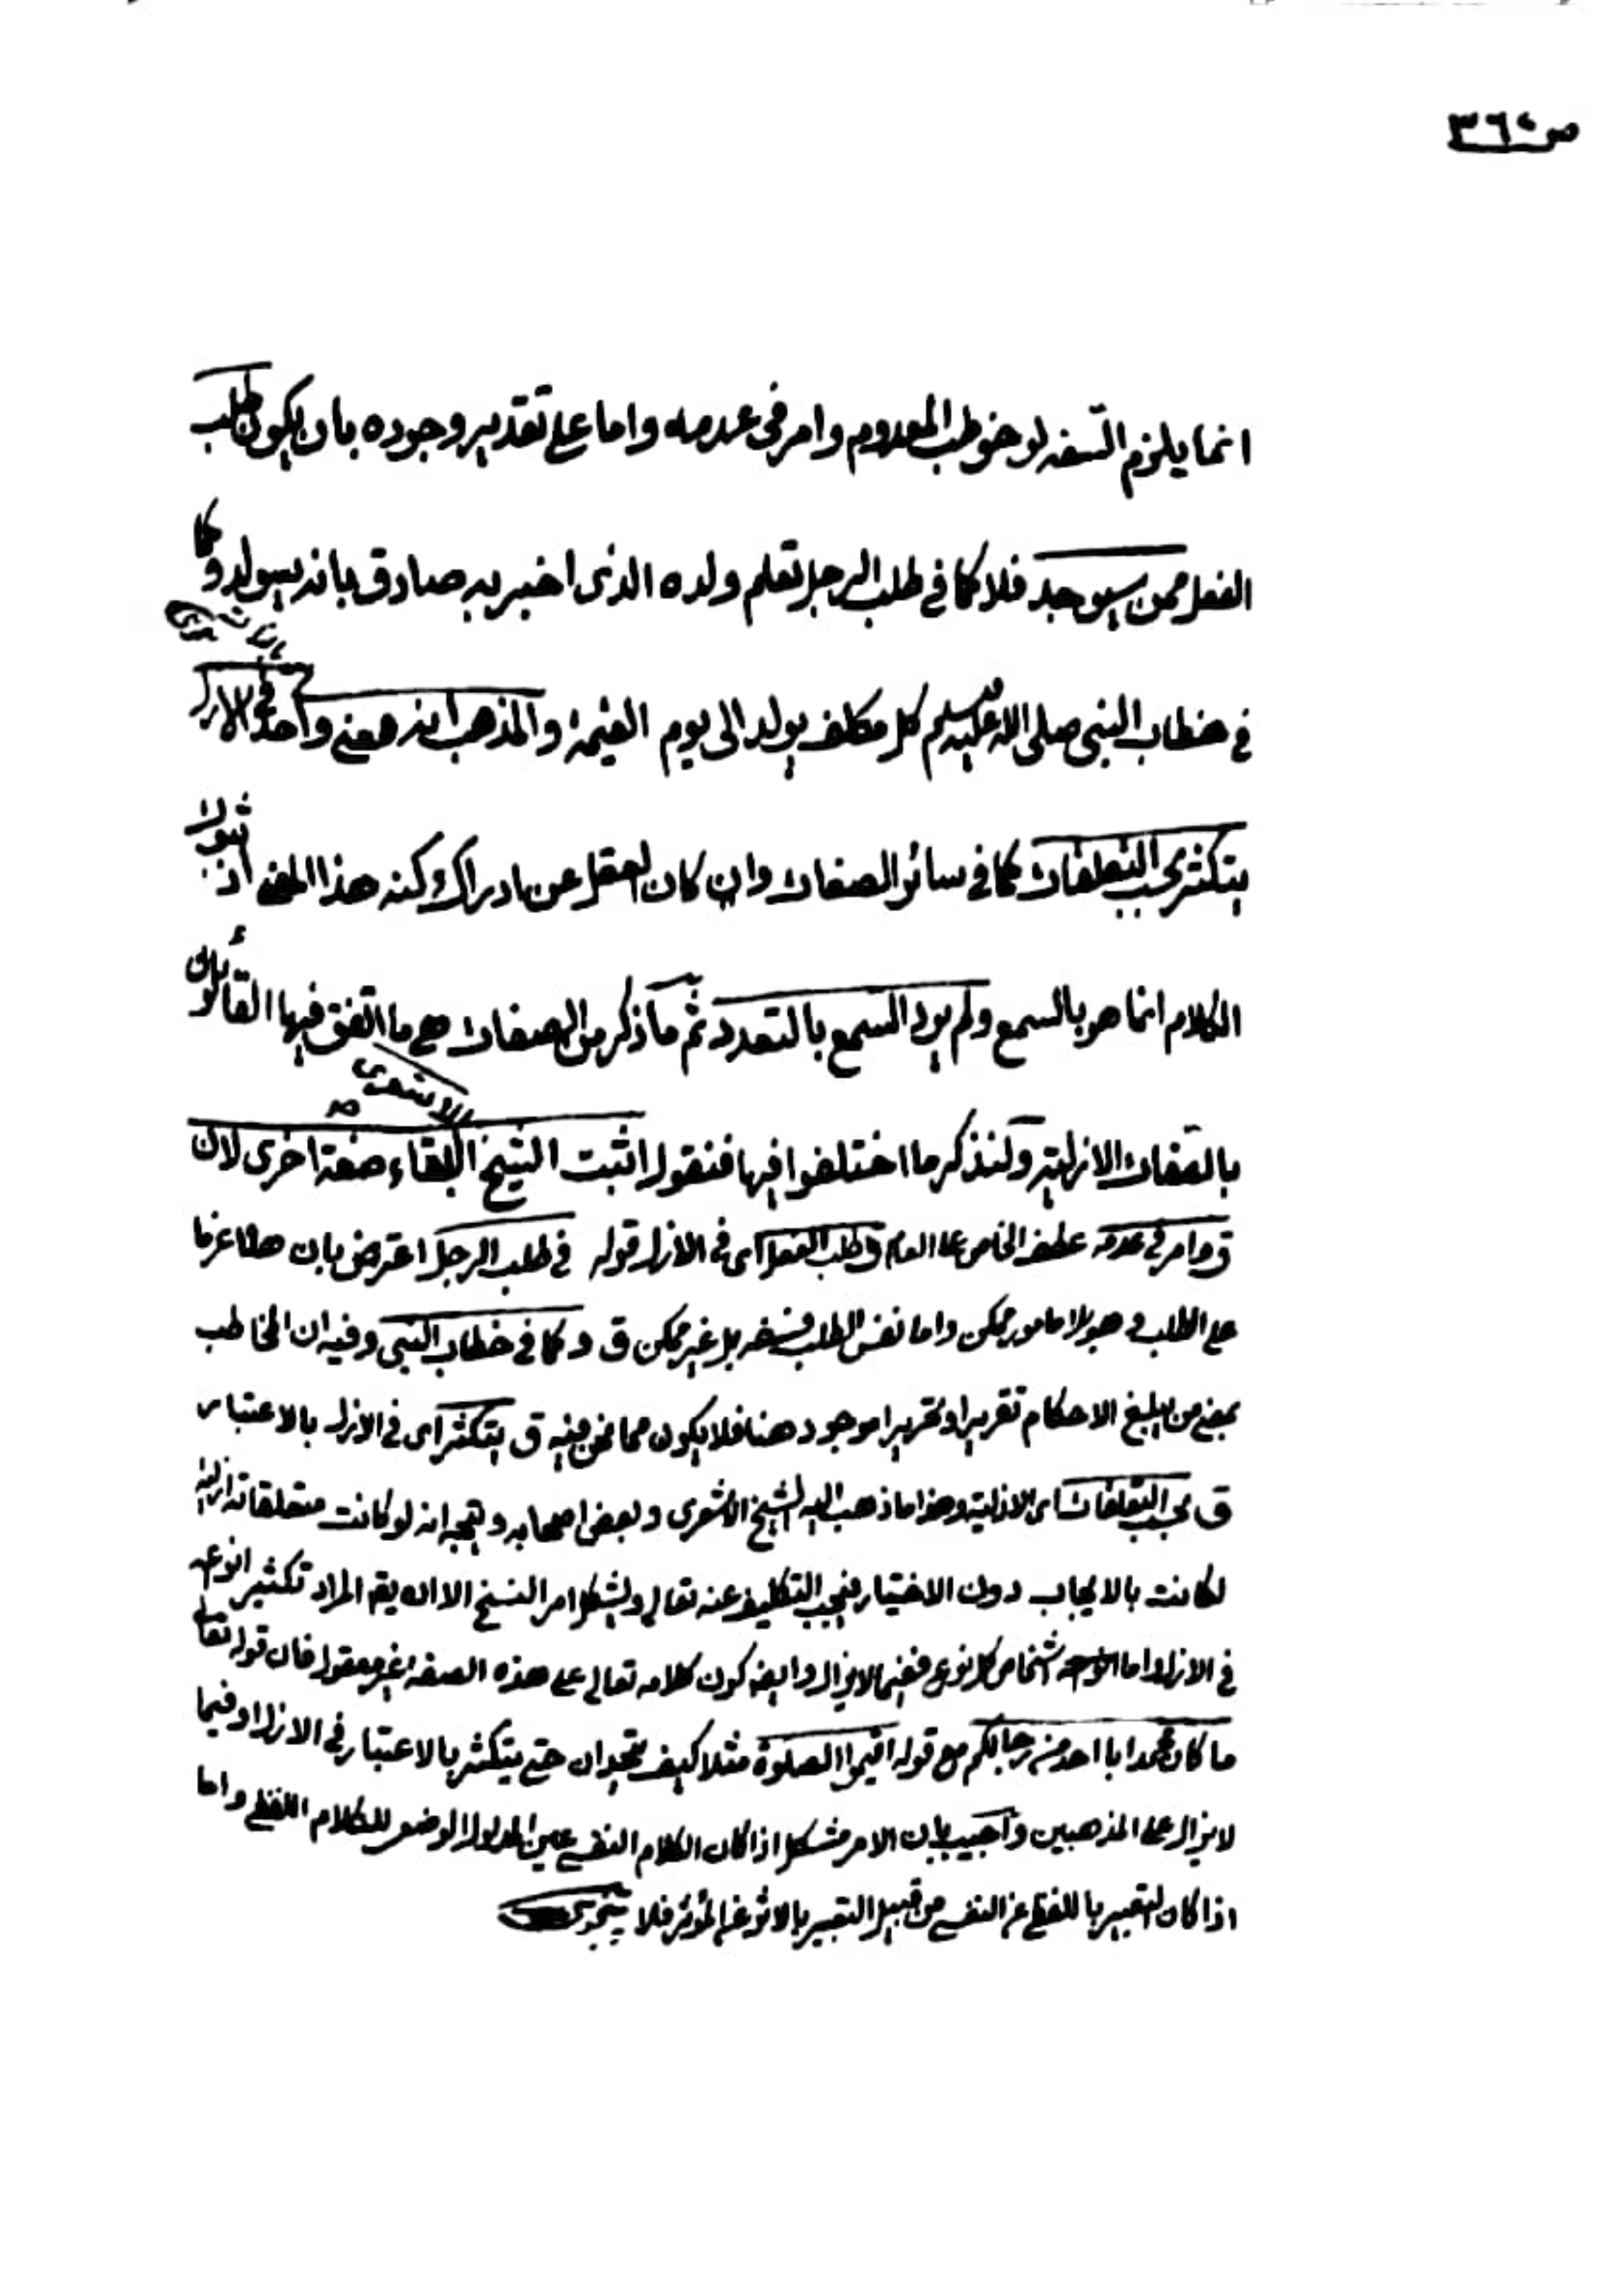 ص ٣٦٠
انما يلزم السفه لو خوطب المعدوم وامر فى عدمه واما على تقدير وجوده بان يكون طلب
الفعل ممن سيوجد فلا كما فى طلب الرجل تعلم ولده الذى اخبر به صادق بانه سيولد وكما
فى خطاب النبى صلى الله عليه وسلم كل مكلف يولد الى يوم القيمة والمذهب انه معنى واحد فى الازل
يتكثر بحسب التعلقات كما فى سائر الصفات وان كان لعقل عن ادراك كنه هذا المعنى اذ ثبوت
الكلام انما هو بالسمع ولم يرد السمع بالتعدد ثم ما ذكر من الصفات هى ما اتفق فيها القائلون
بالصفات الازلية ولنذكر ما اختلفوا فيها فنقول اثبت الشيخ الاشعرى البقاء صفة اخرى لان
ق وامر فى عدمه عطف الخاص على العام ق طلب الفعل اى فى الازل قوله فى طلب الرجل اعترض بان هنا عزما
على الطلب و هو بلا مامور ممكن واما نفس الطلب فسفه بل غير ممكن ق وكما فى خطاب النبى وفيه ان المخاطب
بمعنى من يبلغ الاحكام تقريرا وتحريرا موجود هنا فلا يكون مما نحن فيه ق يتكثر اى فى الازل بالاعتبار
ق بحسب التعلقات اى الازلية وهذا ما ذهب اليه الشيخ الاشعرى وبعض اصحابه ويتجه انه لو كانت متعلقاته ازلية
لكانت بالايجاب دون الاختيار فيجب التكليف عنه تعالى ويشكل امر النسخ الا ان يقم المراد تكثير انواعه
فى الازل واما اشخاص كل نوع ففيما لا يزال وايضه كون كلامه تعالى على هذه الصفة غير معقول فان قوله تعالى
ما كان محمد ابا احد من رجالكم مع قوله اقيموا الصلوة مثلا كيف يتحدان حتى يتكثر بالاعتبار فى الازل او فيما
لا يزال على المذهبين واجيب بان الامر مشكل اذا كان الكلام النفسى عين المدلول الوضعى للكلام اللفظى واما
اذا كان التعبير باللفظى عن النفسى من قبيل التعبير بالاثر عن المؤثر فلا